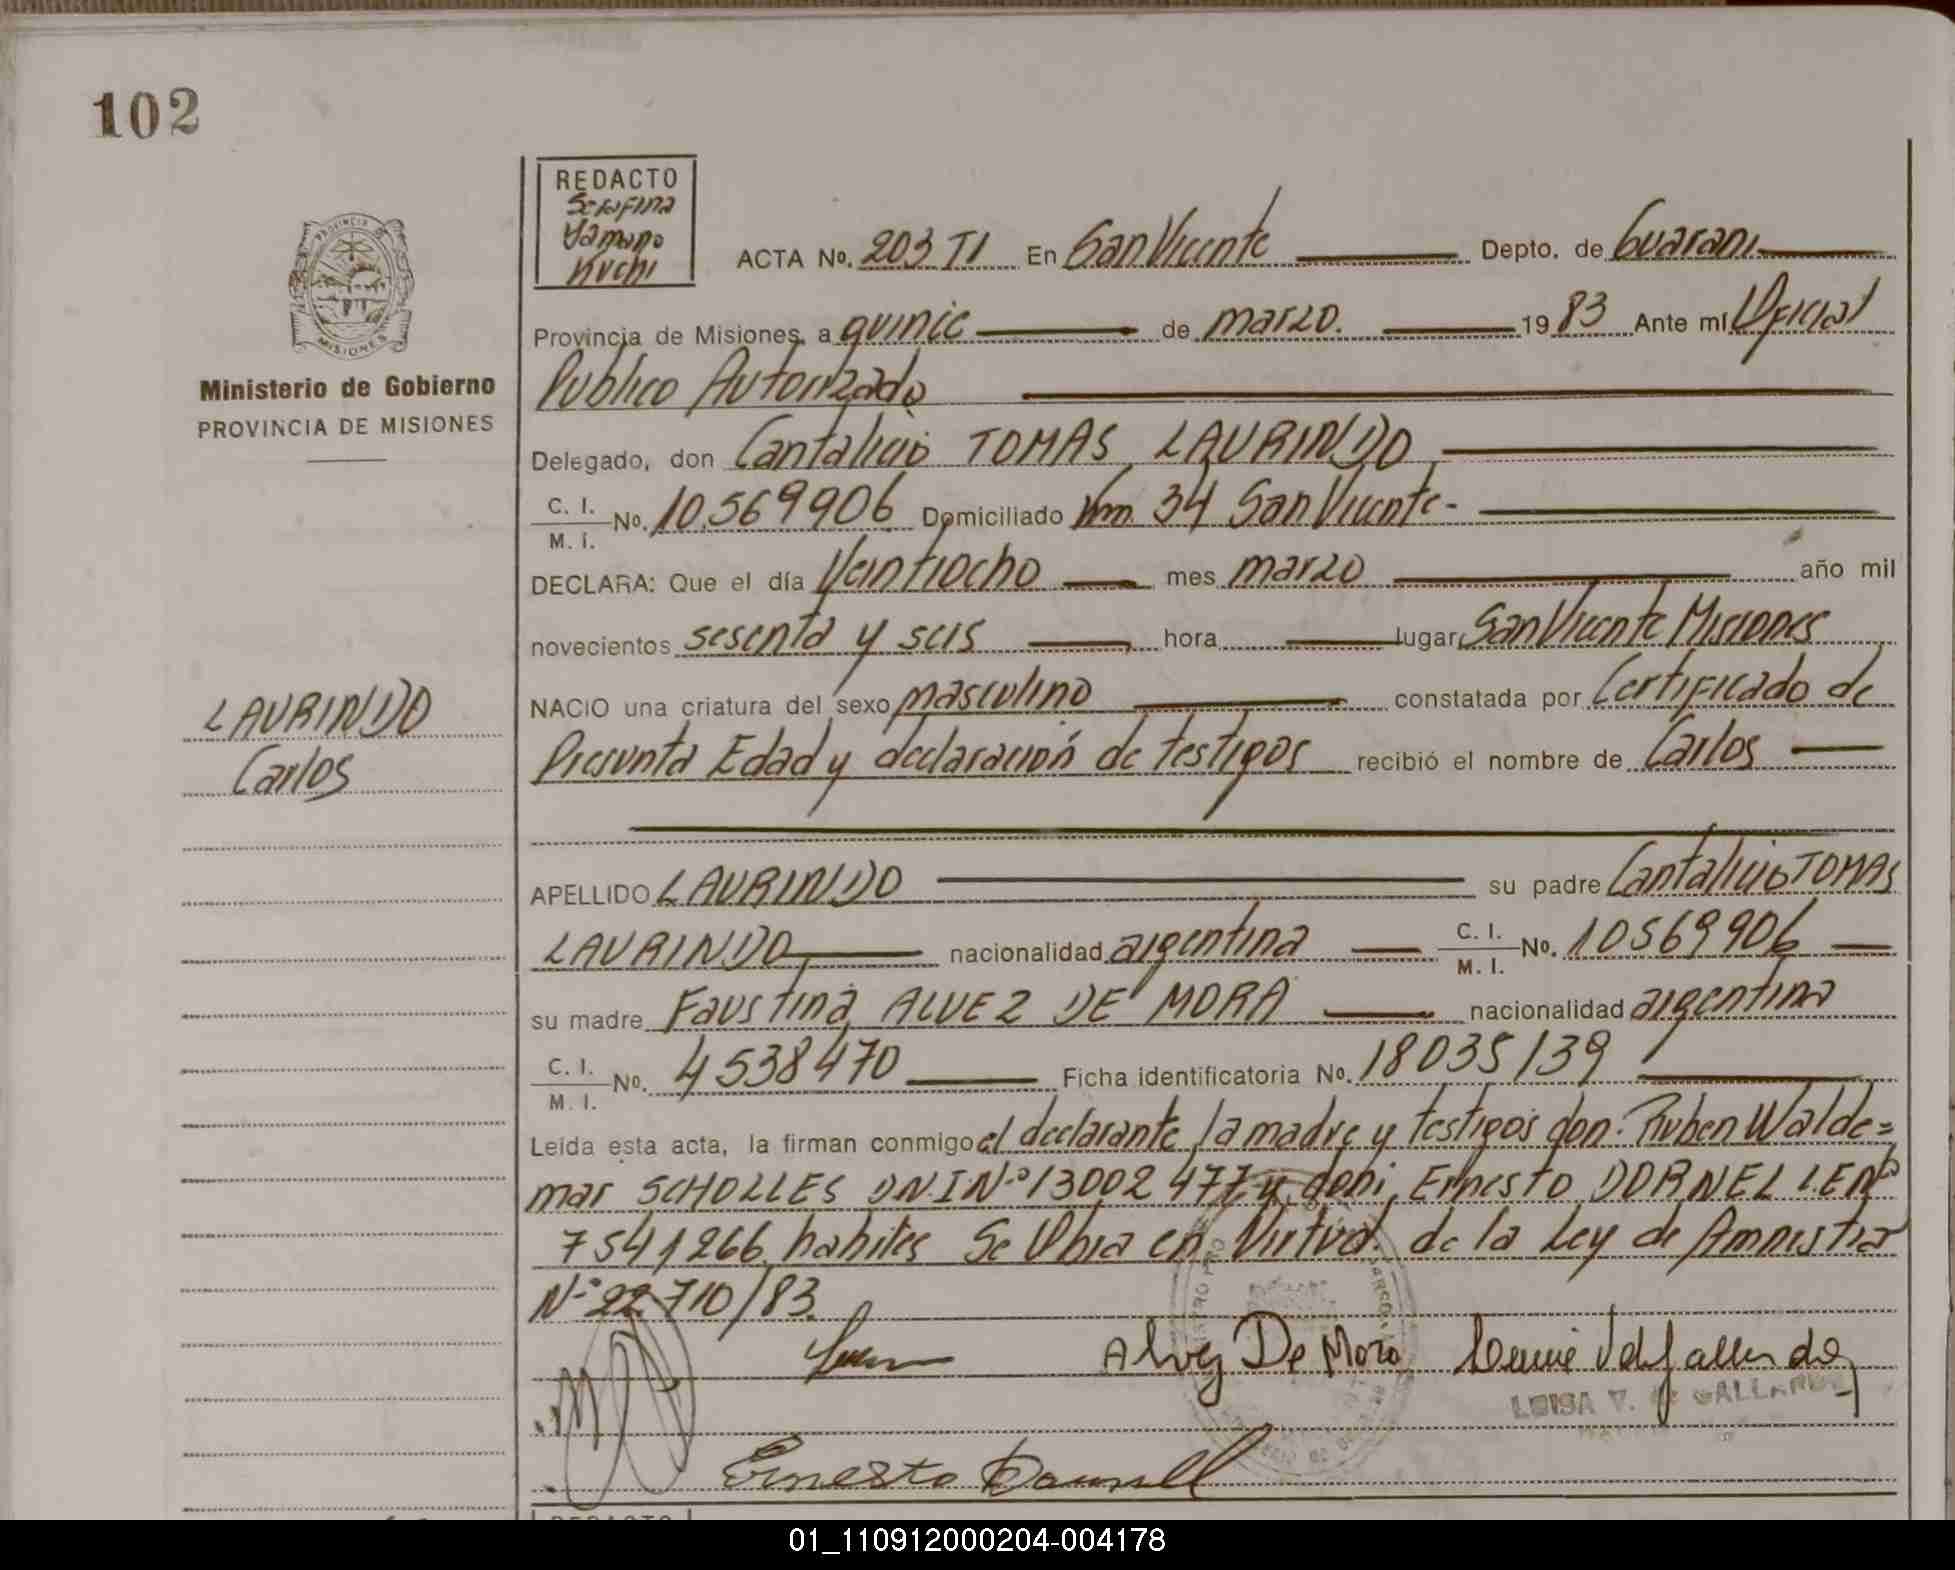 102
REDACTO
Serafina
Yamano
Kuchi
ACTA No. 203 TI En San Vicente Depto. de Guarani
Provincia de Misiones, a quinie de marzo. 1983 Ante mí Oficial
Publico Autorizado
Delegado, don Cantalicio TOMAS LAURINDO
C. I. No. 10.569906 Domiciliado Km. 34 San Vicente-
M. I.
DECLARA: Que el día Veintiocho mes marzo año mil
novecientos sesenta y seis hora lugar San Vicente Misiones
NACIO una criatura del sexo masculino constatada por Certificado de
Presunta Edad y declaración de testigos recibió el nombre de Carlos
APELLIDO LAURINDO su padre Cantalicio TOMAS
LAURINDO nacionalidad argentina C. I. No. 10569906
M. I.
su madre Faustina ALVEZ DE MORA nacionalidad argentina
C. I. No. 4538470 Ficha identificatoria No. 18035/39
M. I.
Leída esta acta, la firman conmigo el declarante, la madre y testigos don: Ruben Walde=
mar SCHOLLES DNI Nº 13002477 y don, Ernesto DORNEL L.E Nº
7541266, habiles Se Obra en Virtud de la Ley de Amnistia
Nº 22710/83.
Alvez De Mora
LUISA V. de GALLARDO
Ernesto Dornell
PROVINCIA DE
MISIONES
Ministerio de Gobierno
PROVINCIA DE MISIONES
LAURINDO
Carlos
REDACTO
01_110912000204-004178